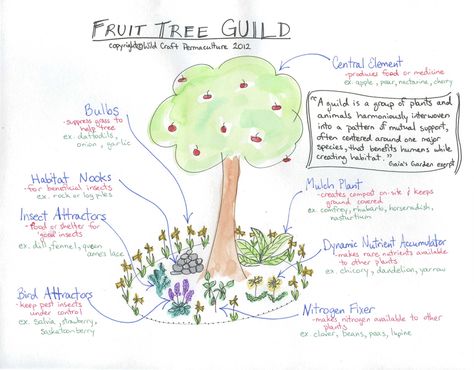 FRUIT TREE GUILD
copyright@Wild Craft Permaculture 2012
Central Element
- produces food or medicine
ex. apple, pear, nectarine, cherry
"A guild is a group of plants and
animals harmoniously interwoven
into a pattern of mutual support,
often centered around one major
species, that benefits humans while
creating habitat."
Gaia's Garden exerpt
Bulbs
- suppress grass to
help tree
ex. daffodils,
onion, garlic
Habitat Nooks
- for beneficial insects
ex. rock or log piles
Insect Attractors
- food or shelter for
good insects
ex. dill, fennel, queen
anne's lace
Bird Attractors
- keep pest insects
under control
ex. salvia, strawberry,
saskatoonberry
Mulch Plant
- creates compost on-site & keeps
ground covered
ex. comfrey, rhubarb, horseradish,
nasturtium
Dynamic Nutrient Accumulator
- makes rare nutrients available
to other plants
ex. chicory, dandelion, yarrow
Nitrogen Fixer
- makes nitrogen available to other
plants
ex. clover, beans, peas, lupine